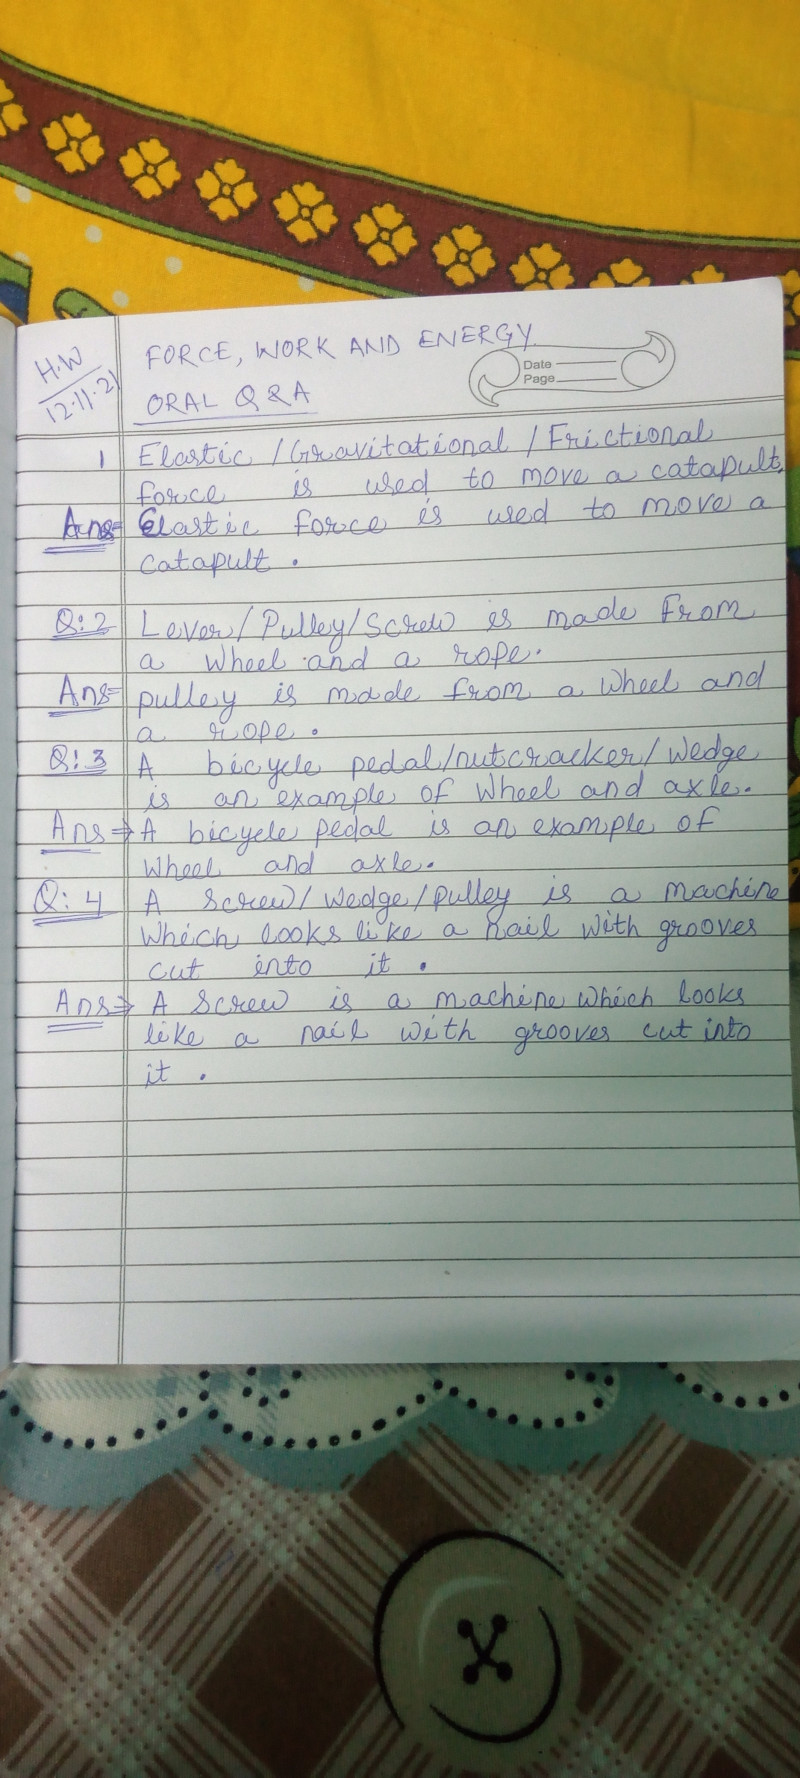 H.W
12.11.21
FORCE, WORK AND ENERGY
ORAL Q & A
Date
Page
1 Elastic / Gravitational / Frictional
force is used to move a catapult.
Ans= Elastic force is used to move a
catapult.
Q:2 Lever/Pulley/Screw is made from
a wheel and a rope.
Ans= pulley is made from a wheel and
a rope.
Q:3 A bicycle pedal/nutcracker/wedge
is an example of wheel and axle.
Ans⇒ A bicycle pedal is an example of
wheel and axle.
Q:4 A screw/wedge/pulley is a machine
which looks like a nail with grooves
cut into it.
Ans⇒ A screw is a machine which looks
like a nail with grooves cut into
it.